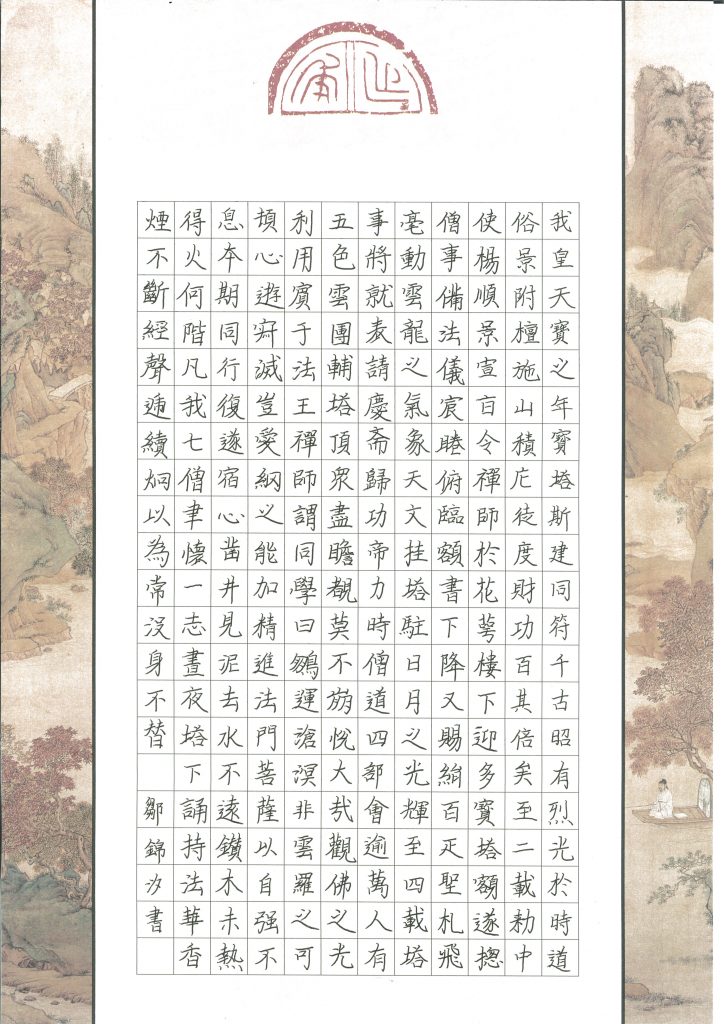 我皇天寶之年寶塔斯建同符千古昭有烈光於時道
俗景附檀施山積庀徒度財功百其倍矣至二載勑中
使楊順景宣旨令禪師於花萼樓下迎多寶塔額遂摠
僧事備法儀宸睠俯臨額書下降又賜絹百疋聖札飛
毫動雲龍之氣象天文挂塔駐日月之光輝至四載塔
事將就表請慶斋歸功帝力時僧道四部會逾萬人有
五色雲團輔塔頂衆盡瞻覩莫不崩悅大哉觀佛之光
利用賓于法王禪師謂同學曰鵷運滄溟非雲羅之可
頓心遊寂滅豈愛網之能加精進法門菩薩以自强不
息本期同行復遂宿心凿井見泥去水不遠鑽木未熱
得火何階凡我七僧聿懷一志晝夜塔下誦持法華香
煙不斷經聲遞續炯以為常沒身不替 鄒錦汐書